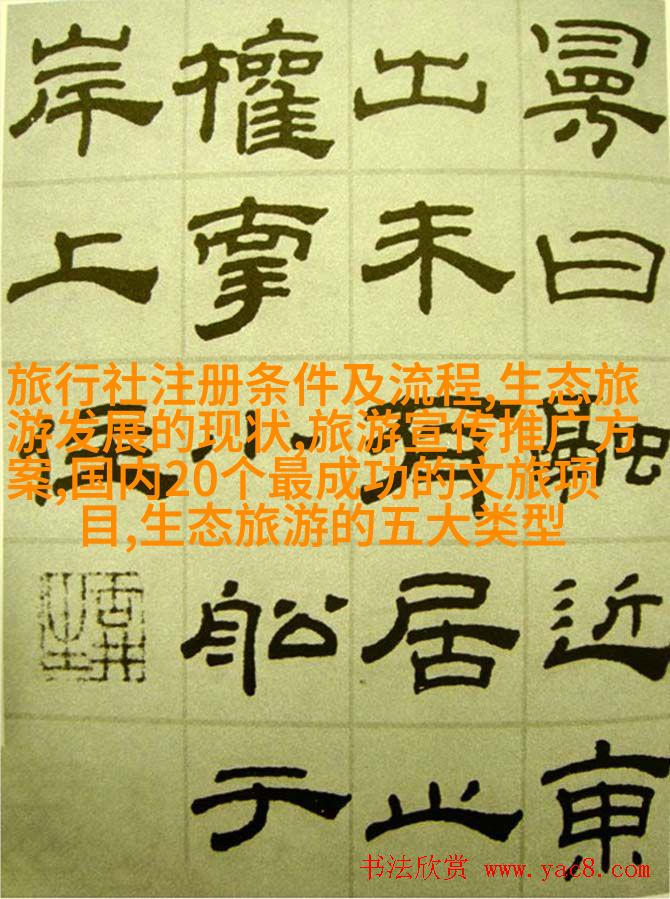 曰融近東
出未有居止
權牽小船于
岸上住
旅行社注册条件及流程,生态旅
游发展的现状,旅游宣传推广方
案,国内20个最成功的文旅项
目,生态旅游的五大类型
书法欣赏 www.yac8.com